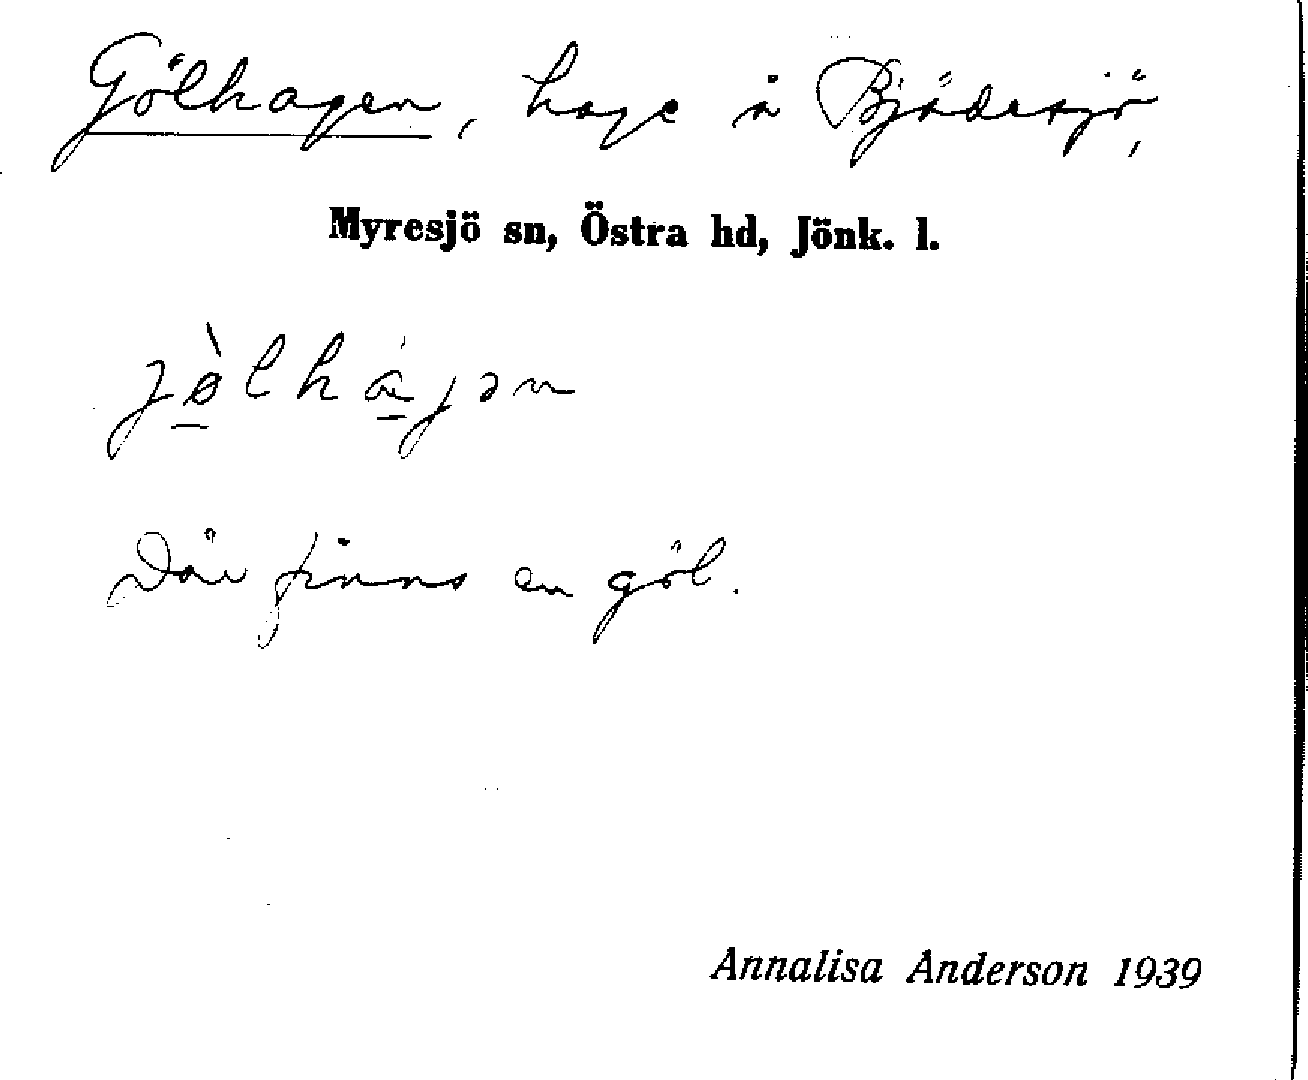 Gölhagen, hage å Bjädesjö,
Myresjö sn, Östra hd, Jönk. l.
jø̀lhájən
Där finns en göl.
Annalisa Anderson 1939